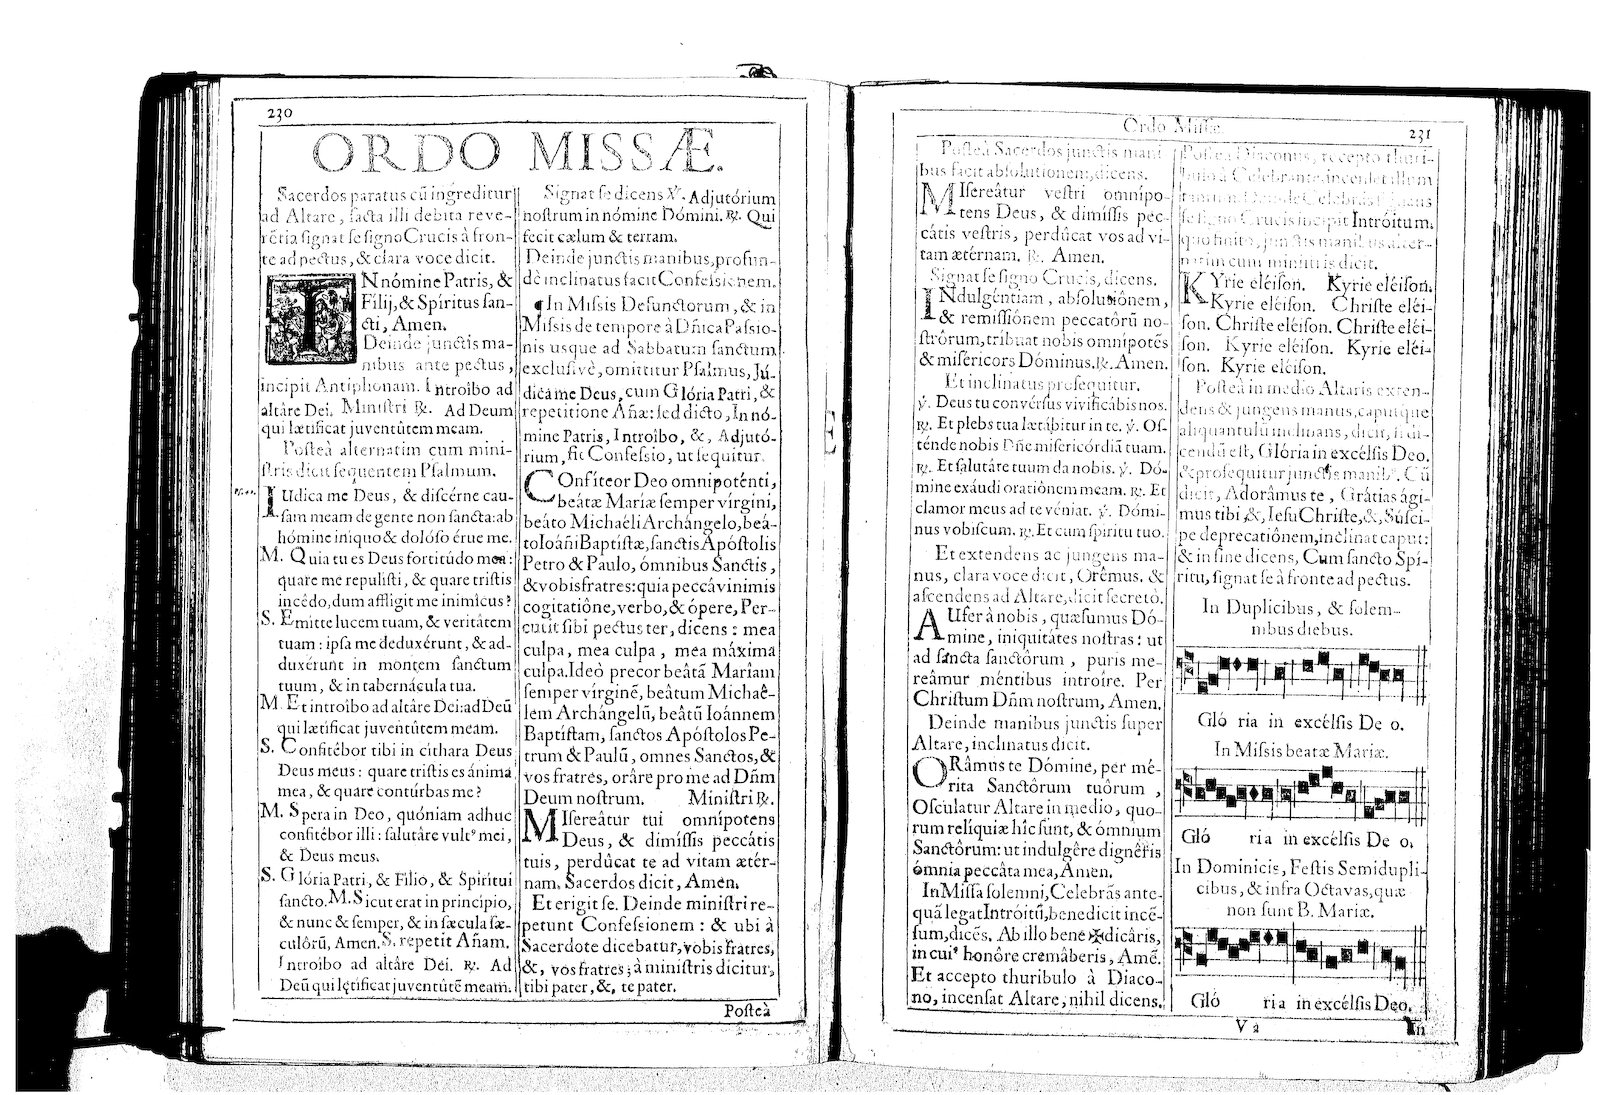 230
ORDO MISSÆ.
Sacerdos paratus cū ingreditur
ad Altare, facta illi debita reve-
rētia signat se signo Crucis à fron-
te ad pectus, & clara voce dicit.
IN nómine Patris, &
Fílij, & Spíritus san-
cti, Amen.
Deinde junctis ma-
nibus ante pectus,
incipit Antiphonam. Introîbo ad
altâre Dei. Ministri ℟. Ad Deum
qui lætíficat juventûtem meam.
Posteà alternatim cum mini-
stris dicit sequentem Psalmum.
IUdica me Deus, & discérne cau-
sam meam de gente non sancta: ab
hómine iniquo & dolóso érue me.
M. Quia tu es Deus fortitúdo mea:
quare me repulísti, & quare tristis
incédo, dum afflígit me inimícus?
S. Emitte lucem tuam, & veritâtem
tuam: ipsa me deduxérunt, & ad-
duxérunt in montem sanctum
tuum, & in tabernácula tua.
M. Et introîbo ad altâre Dei: ad Deū
qui lætíficat juventûtem meam.
S. Confitébor tibi in cíthara Deus
Deus meus: quare tristis es ánima
mea, & quare contúrbas me?
M. Spera in Deo, quóniam adhuc
confitébor illi: salutâre vultꝰ mei,
& Deus meus.
S. Glória Patri, & Filio, & Spíritui
sancto. M. Sicut erat in princípio,
& nunc & semper, & in sæcula sæ-
culôrū, Amen. S. repetit Añam.
Introîbo ad altâre Dei. ℟. Ad
Deū qui lętíficat juventûtē meam.
Signat se dicens ℣. Adjutórium
nostrum in nómine Dómini. ℟. Qui
fecit cælum & terram.
Deinde junctis manibus, profun-
dè inclinatus facit Confessionem.
¶ In Missis Defunctorum, & in
Missis de tempore à Dñica Passio-
nis usque ad Sabbatum sanctum
exclusivè, omittitur Psalmus, Jú-
dica me Deus, cum Glória Patri, &
repetitione Añæ: sed dicto, In nó-
mine Patris, Introîbo, &, Adjutó-
rium, fit Confessio, ut sequitur.
COnfíteor Deo omnipoténti,
beátæ Maríæ semper vírgini,
beáto Michaéli Archángelo, beá-
to Ioáñi Baptístæ, sanctis Apóstolis
Petro & Paulo, ómnibus Sanctis,
& vobis fratres: quia peccávi nimis
cogitatiône, verbo, & ópere, Per-
cutit sibi pectus ter, dicens: mea
culpa, mea culpa, mea máxima
culpa. Ideò precor beâtā Maríam
semper vírginē, beâtum Michaê-
lem Archángelū, beâtū Ioánnem
Baptístam, sanctos Apóstolos Pe-
trum & Paulū, omnes Sanctos, &
vos fratres, orâre pro me ad Dñm
Deum nostrum. Ministri ℟.
MIsereâtur tui omnípotens
Deus, & dimíssis peccátis
tuis, perdûcat te ad vitam ætér-
nam. Sacerdos dicit, Amen.
Et erigit se. Deinde ministri re-
petunt Confessionem: & ubi à
Sacerdote dicebatur, vobis fratres,
&, vos fratres; à ministris dicitur,
tibi pater, &, te pater.
Posteà
Ordo Missæ.
231
Posteà Sacerdos junctis mani
bus facit absolutionem, dicens.
MIsereâtur vestri omnípo-
tens Deus, & dimíssis pec-
câtis vestris, perdûcat vos ad vi-
tam ætérnam. ℟. Amen.
Signat se signo Crucis, dicens.
INdulgéntiam, absolutiônem,
& remissiónem peccatôrū no-
strôrum, tribuat nobis omnípotēs
& miséricors Dóminus. ℟. Amen.
Et inclinatus prosequitur.
℣. Deus tu convérsus vivificâbis nos.
℟. Et plebs tua lætâbitur in te. ℣. Os-
ténde nobis Dñe misericórdiā tuam.
℟. Et salutáre tuum da nobis. ℣. Dó-
mine exáudi oratiônem meam. ℟. Et
clamor meus ad te véniat. ℣. Dómi-
nus vobíscum. ℟. Et cum spíritu tuo.
Et extendens ac jungens ma-
nus, clara voce dicit, Orêmus. &
ascendens ad Altare, dicit secretò.
AUfer à nobis, quæsumus Dó-
mine, iniquitátes nostras: ut
ad sáncta sanctôrum, puris me-
reâmur méntibus introíre. Per
Christum Dñm nostrum, Amen.
Deinde manibus junctis super
Altare, inclinatus dicit.
ORâmus te Dómine, per mé-
rita Sanctôrum tuôrum,
Osculatur Altare in medio, quo-
rum relíquiæ hîc sunt, & ómnium
Sanctôrum: ut indulgêre dignêris
ómnia peccâta mea, Amen.
In Missa solemni, Celebrās ante-
quā legat Introitū, benedicit incē-
sum, dicēs. Ab illo bene✠dicâris,
in cuiꝰ honôre cremâberis, Amē.
Et accepto thuribulo à Diaco-
no, incensat Altare, nihil dicens.
Posteà Diaconus, recepto thuri-
bulo à Celebrante, incenset illum
tantùm. Deinde Celebrās signans
se signo Crucis incipit Intróitum,
quo finito, junctis manibus alter-
natim cum ministris dicit.
KYrie eléison. Kyrie eléison.
Kyrie eléison. Christe eléi-
son. Christe eléison. Christe eléi-
son. Kyrie eléison. Kyrie eléi-
son. Kyrie eléison.
Posteà in medio Altaris exten-
dens & jungens manus, caputque
aliquantulū inclinans, dicit, si di-
cendū est, Glória in excélsis Deo.
& prosequitur junctis manibꝰ. Cū
dicit, Adorâmus te, Grátias ági-
mus tibi, &, Iesu Christe, &, Súsci-
pe deprecatiônem, inclinat caput:
& in fine dicens, Cum sancto Spí-
ritu, signat se à fronte ad pectus.
In Duplicibus, & solem-
nibus diebus.
Gló ria in excélsis De o.
In Missis beatæ Mariæ.
Gló ria in excélsis De o.
In Dominicis, Festis Semidupli-
cibus, & infra Octavas, quæ
non sunt B. Mariæ.
Gló ria in excélsis Deo.
V 2
In